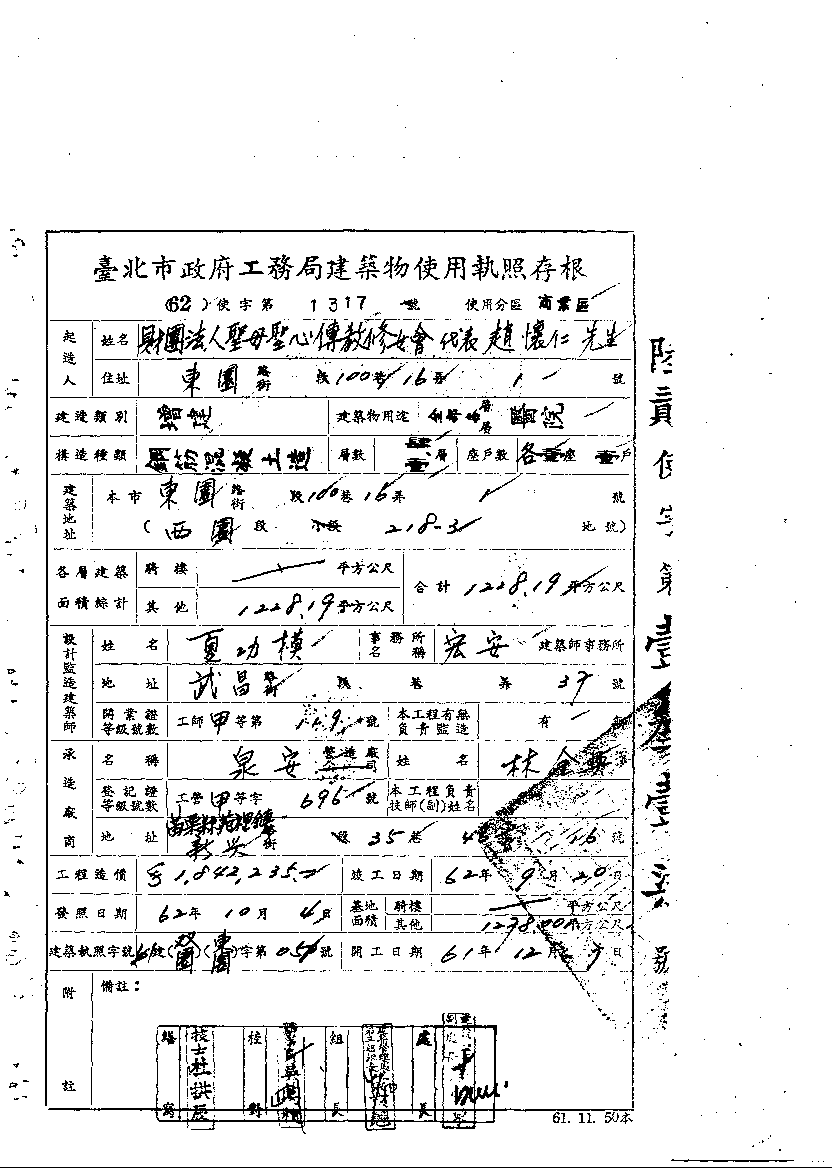 臺北市政府工務局建築物使用執照存根
(62)使字第 1317 號 使用分區 商業區
起造人 姓名 財團法人聖母聖心傳教修女會 代表 趙懷仁 先生
住址 東園 路街 段 100 巷 16 弄 1 號
建造類別 增建 建築物用途 醫院
構造種類 鋼筋混凝土造 層數 層 座戶數 各壹座 壹戶
建築地址 本市 東園 路街 段 100 巷 16 弄 1 號
(西園 段 小段 218-3 地號)
各層建築面積綜計 騎樓 平方公尺 合計 1228.19 平方公尺
其他 1228.19 平方公尺
設計監造建築師 姓名 夏功模 事務所名稱 宏安 建築師事務所
地址 武昌 路街 段 巷 弄 37 號
開業證等級號數 工師 甲 等第 號 本工程有無負責監造 有
承造廠商 名稱 泉安 營造廠公司 姓名 林
登記證等級號數 工營 甲 等字 695 號 本工程負責技師(副)姓名
地址 苗栗縣 新興 路街 段 35 巷 號
工程造價 $1,842,235.- 竣工日期 62年 9月 20日
發照日期 62年 10月 4日 基地面積 騎樓 平方公尺
其他 1238.00 平方公尺
建築執照字號 建( )( )字第 號 開工日期 61年 12月 9日
附註 備註:
繕寫 技士杜 校對 組長 處長
61. 11. 50本
使字第壹 號